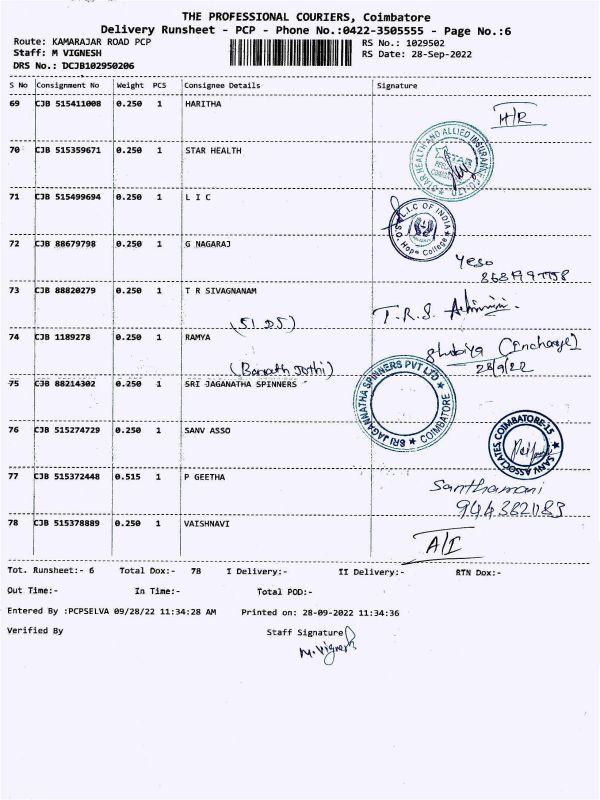 THE PROFESSIONAL COURIERS, Coimbatore
Delivery Runsheet - PCP - Phone No.:0422-3505555 - Page No.:6
Route: KAMARAJAR ROAD PCP RS No.: 1029502
Staff: M VIGNESH RS Date: 28-Sep-2022
DRS No.: DCJB102950206
S No Consignment No Weight PCS Consignee Details Signature
69 CJB 515411008 0.250 1 HARITHA
H/R
70 CJB 515359671 0.250 1 STAR HEALTH
STAR HEALTH AND ALLIED INSURANCE CO. LTD
STAR
71 CJB 515499694 0.250 1 L I C
L.I.C OF INDIA
S.O. Hope College
72 CJB 88679798 0.250 1 G NAGARAJ
73 CJB 88820279 0.250 1 T R SIVAGNANAM
T.R.S.
74 CJB 1189278 0.250 1 RAMYA
(Incharge)
28/9/22
75 CJB 88214302 0.250 1 SRI JAGANATHA SPINNERS
SRI JAGANNATHA SPINNERS PVT LTD
COIMBATORE
76 CJB 515274729 0.250 1 SANV ASSO
SANV ASSOCIATES, COIMBATORE-15
77 CJB 515372448 0.515 1 P GEETHA
Santhamani
78 CJB 515378889 0.250 1 VAISHNAVI
A/I
Tot. Runsheet:- 6 Total Dox:- 78 I Delivery:- II Delivery:- RTN Dox:-
Out Time:- In Time:- Total POD:-
Entered By :PCPSELVA 09/28/22 11:34:28 AM Printed on: 28-09-2022 11:34:36
Verified By Staff Signature
M.Vignesh